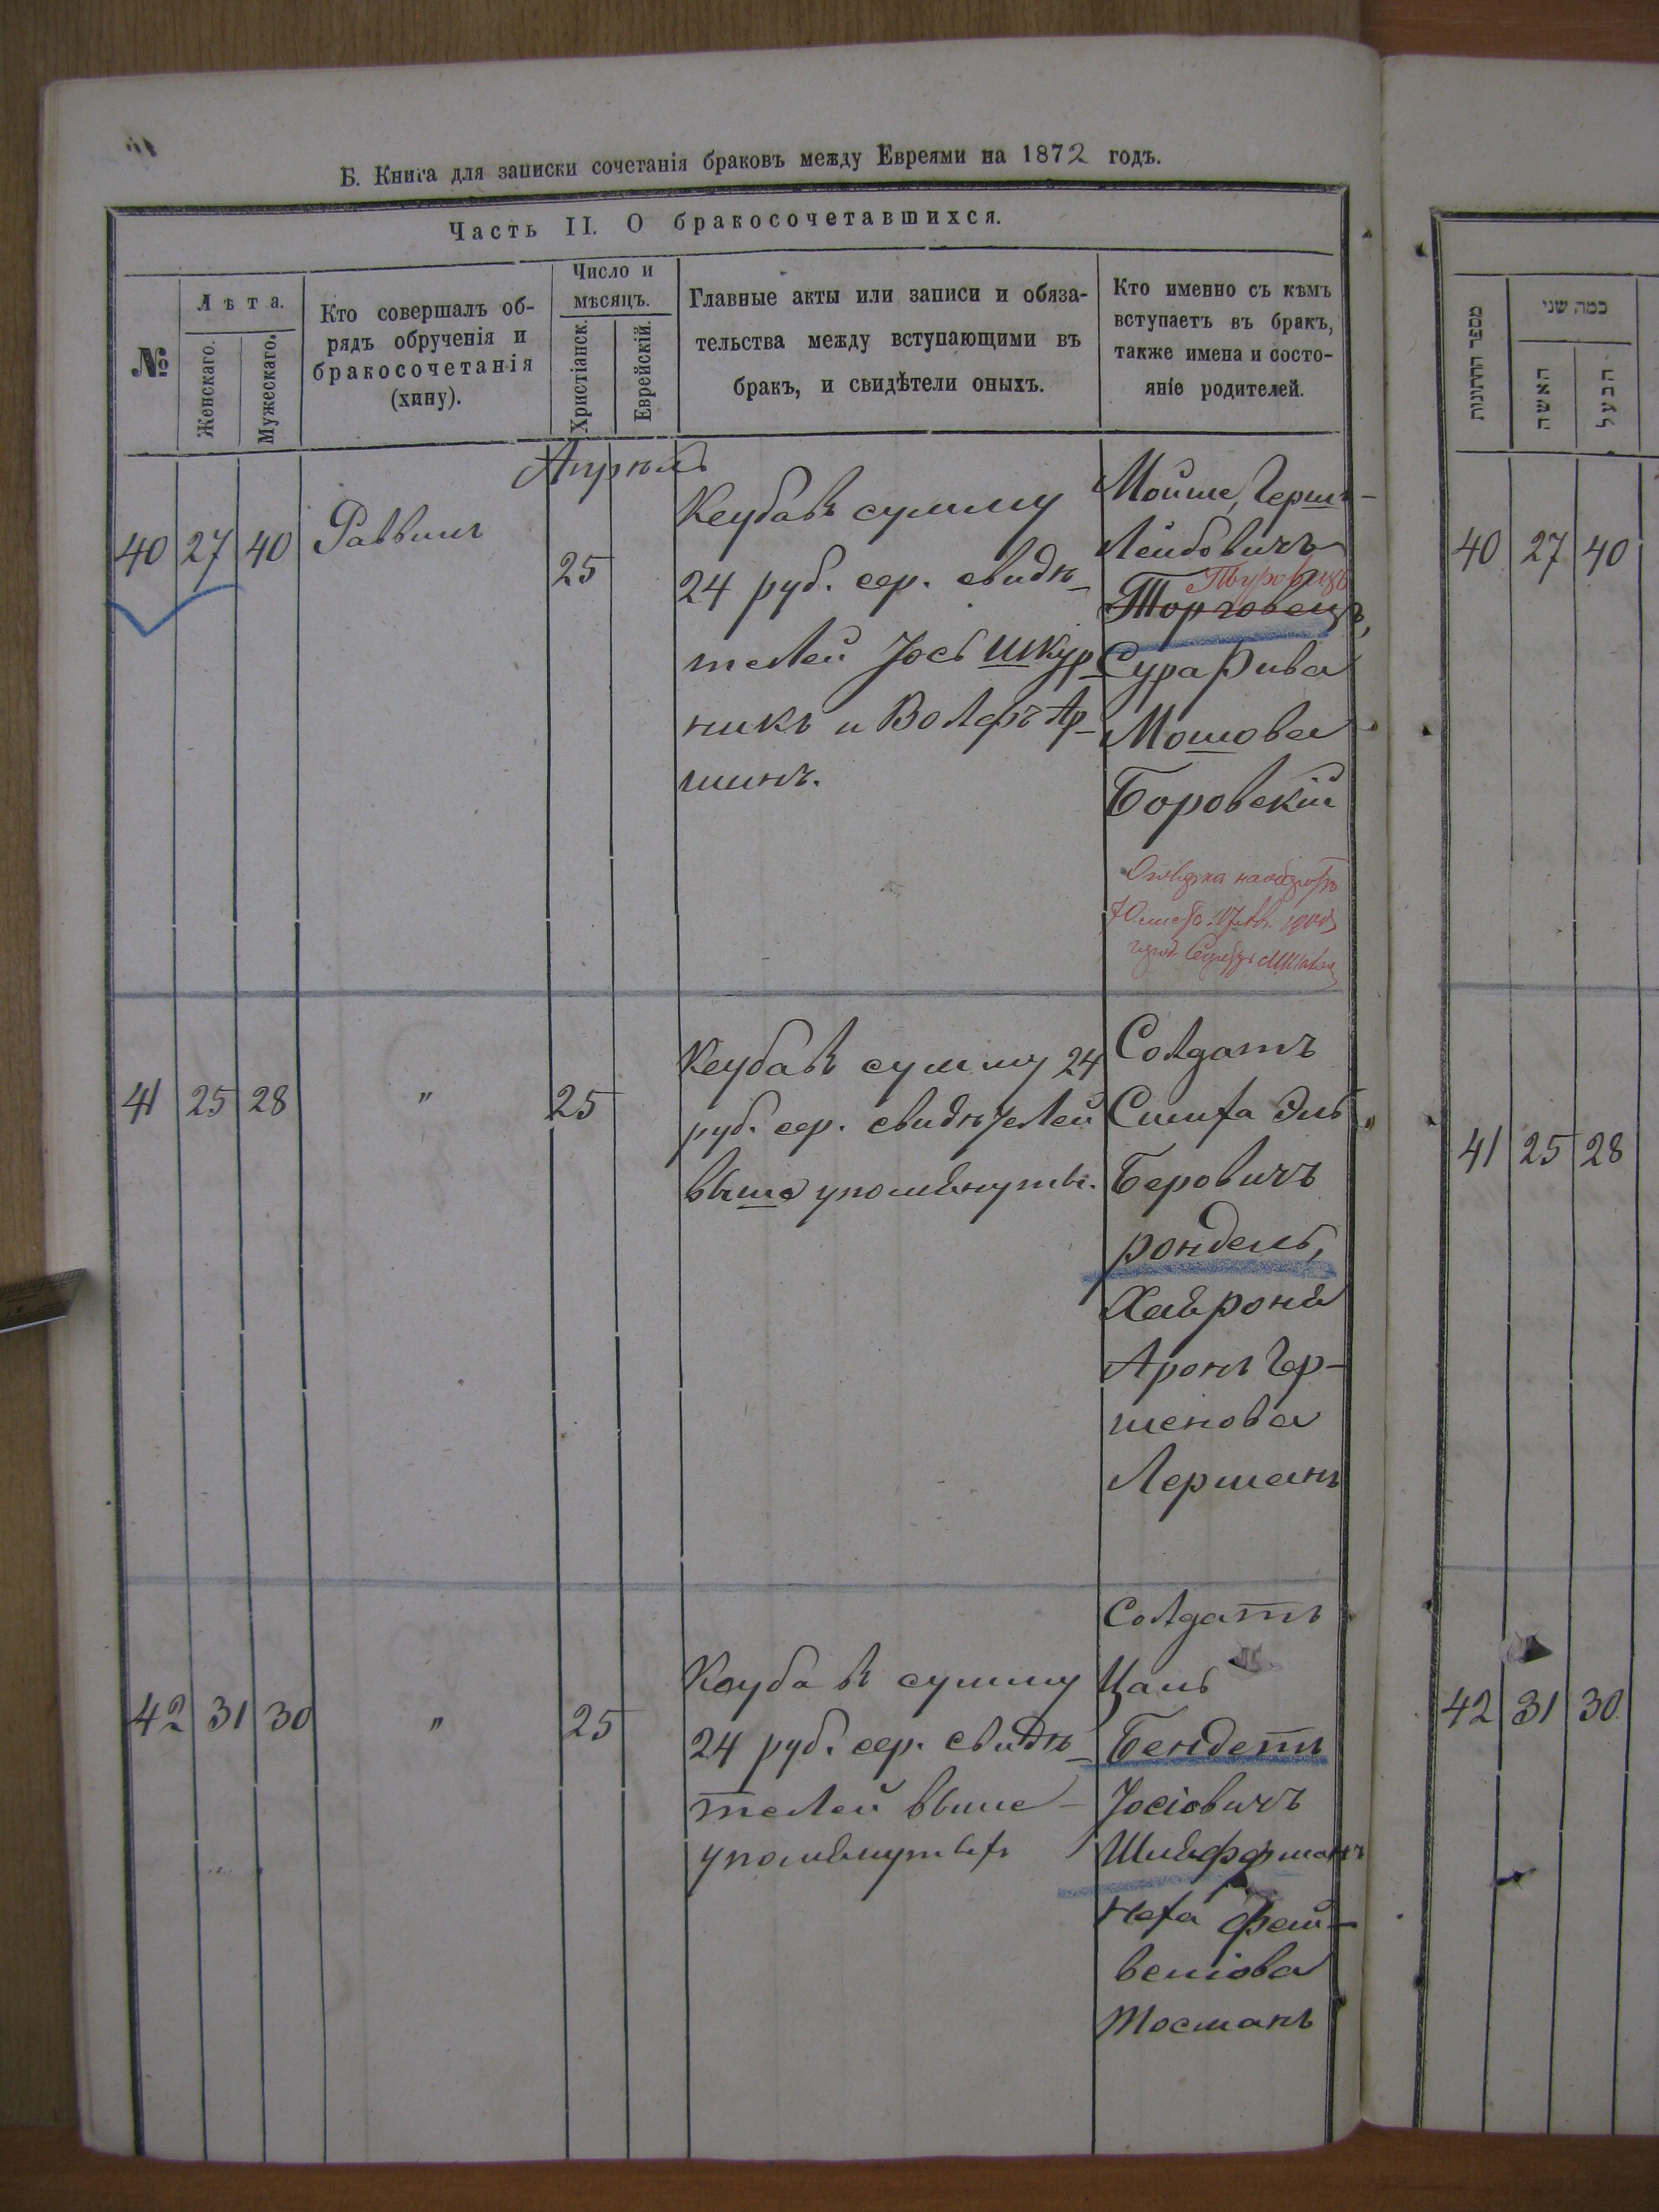 Б. Книга для записки сочетанія браковъ между Евреями на 1872 годъ.
Часть II. О бракосочетавшихся.
№
Лѣта.
Женскаго.
Мужескаго.
Кто совершалъ об-
рядъ обрученія и
бракосочетанія
(хину).
Число и
мѣсяцъ.
Христіанск.
Еврейскій.
Главные акты или записи и обяза-
тельства между вступающими въ
бракъ, и свидѣтели оныхъ.
Кто именно съ кѣмъ
вступаетъ въ бракъ,
также имена и состо-
яніе родителей.
מספר החתונות
כמה שני
האשה
הבעל
Апрель
40 27 40 Раввинъ 25
Кеуба въ сумму
24 руб. сер. свидѣ-
телей Іось Шкур-
никъ и Волфъ Ар-
шинъ.
Мойше, Герш-
Лейбовичъ
Туровецъ
Торговецъ,
Сура Рива
Мошова
Боровскій
40 27 40
41 25 28 " 25
Кеуба въ сумму 24
руб. сер. свидѣтелей
выше упомянуты.
Солдатъ
Симха Эль
Беровичъ
рондель,
Хая роня
Аронъ Гер-
шенова
Лерманъ
41 25 28
42 31 30 " 25
Кеуба въ сумму
24 руб. сер. свидѣ-
телей выше-
упомянутыхъ
Солдатъ
Цаль
Бендетъ
Іосіовичъ
Шияффманъ
Неха Фай-
вешова
Тосманъ
42 31 30